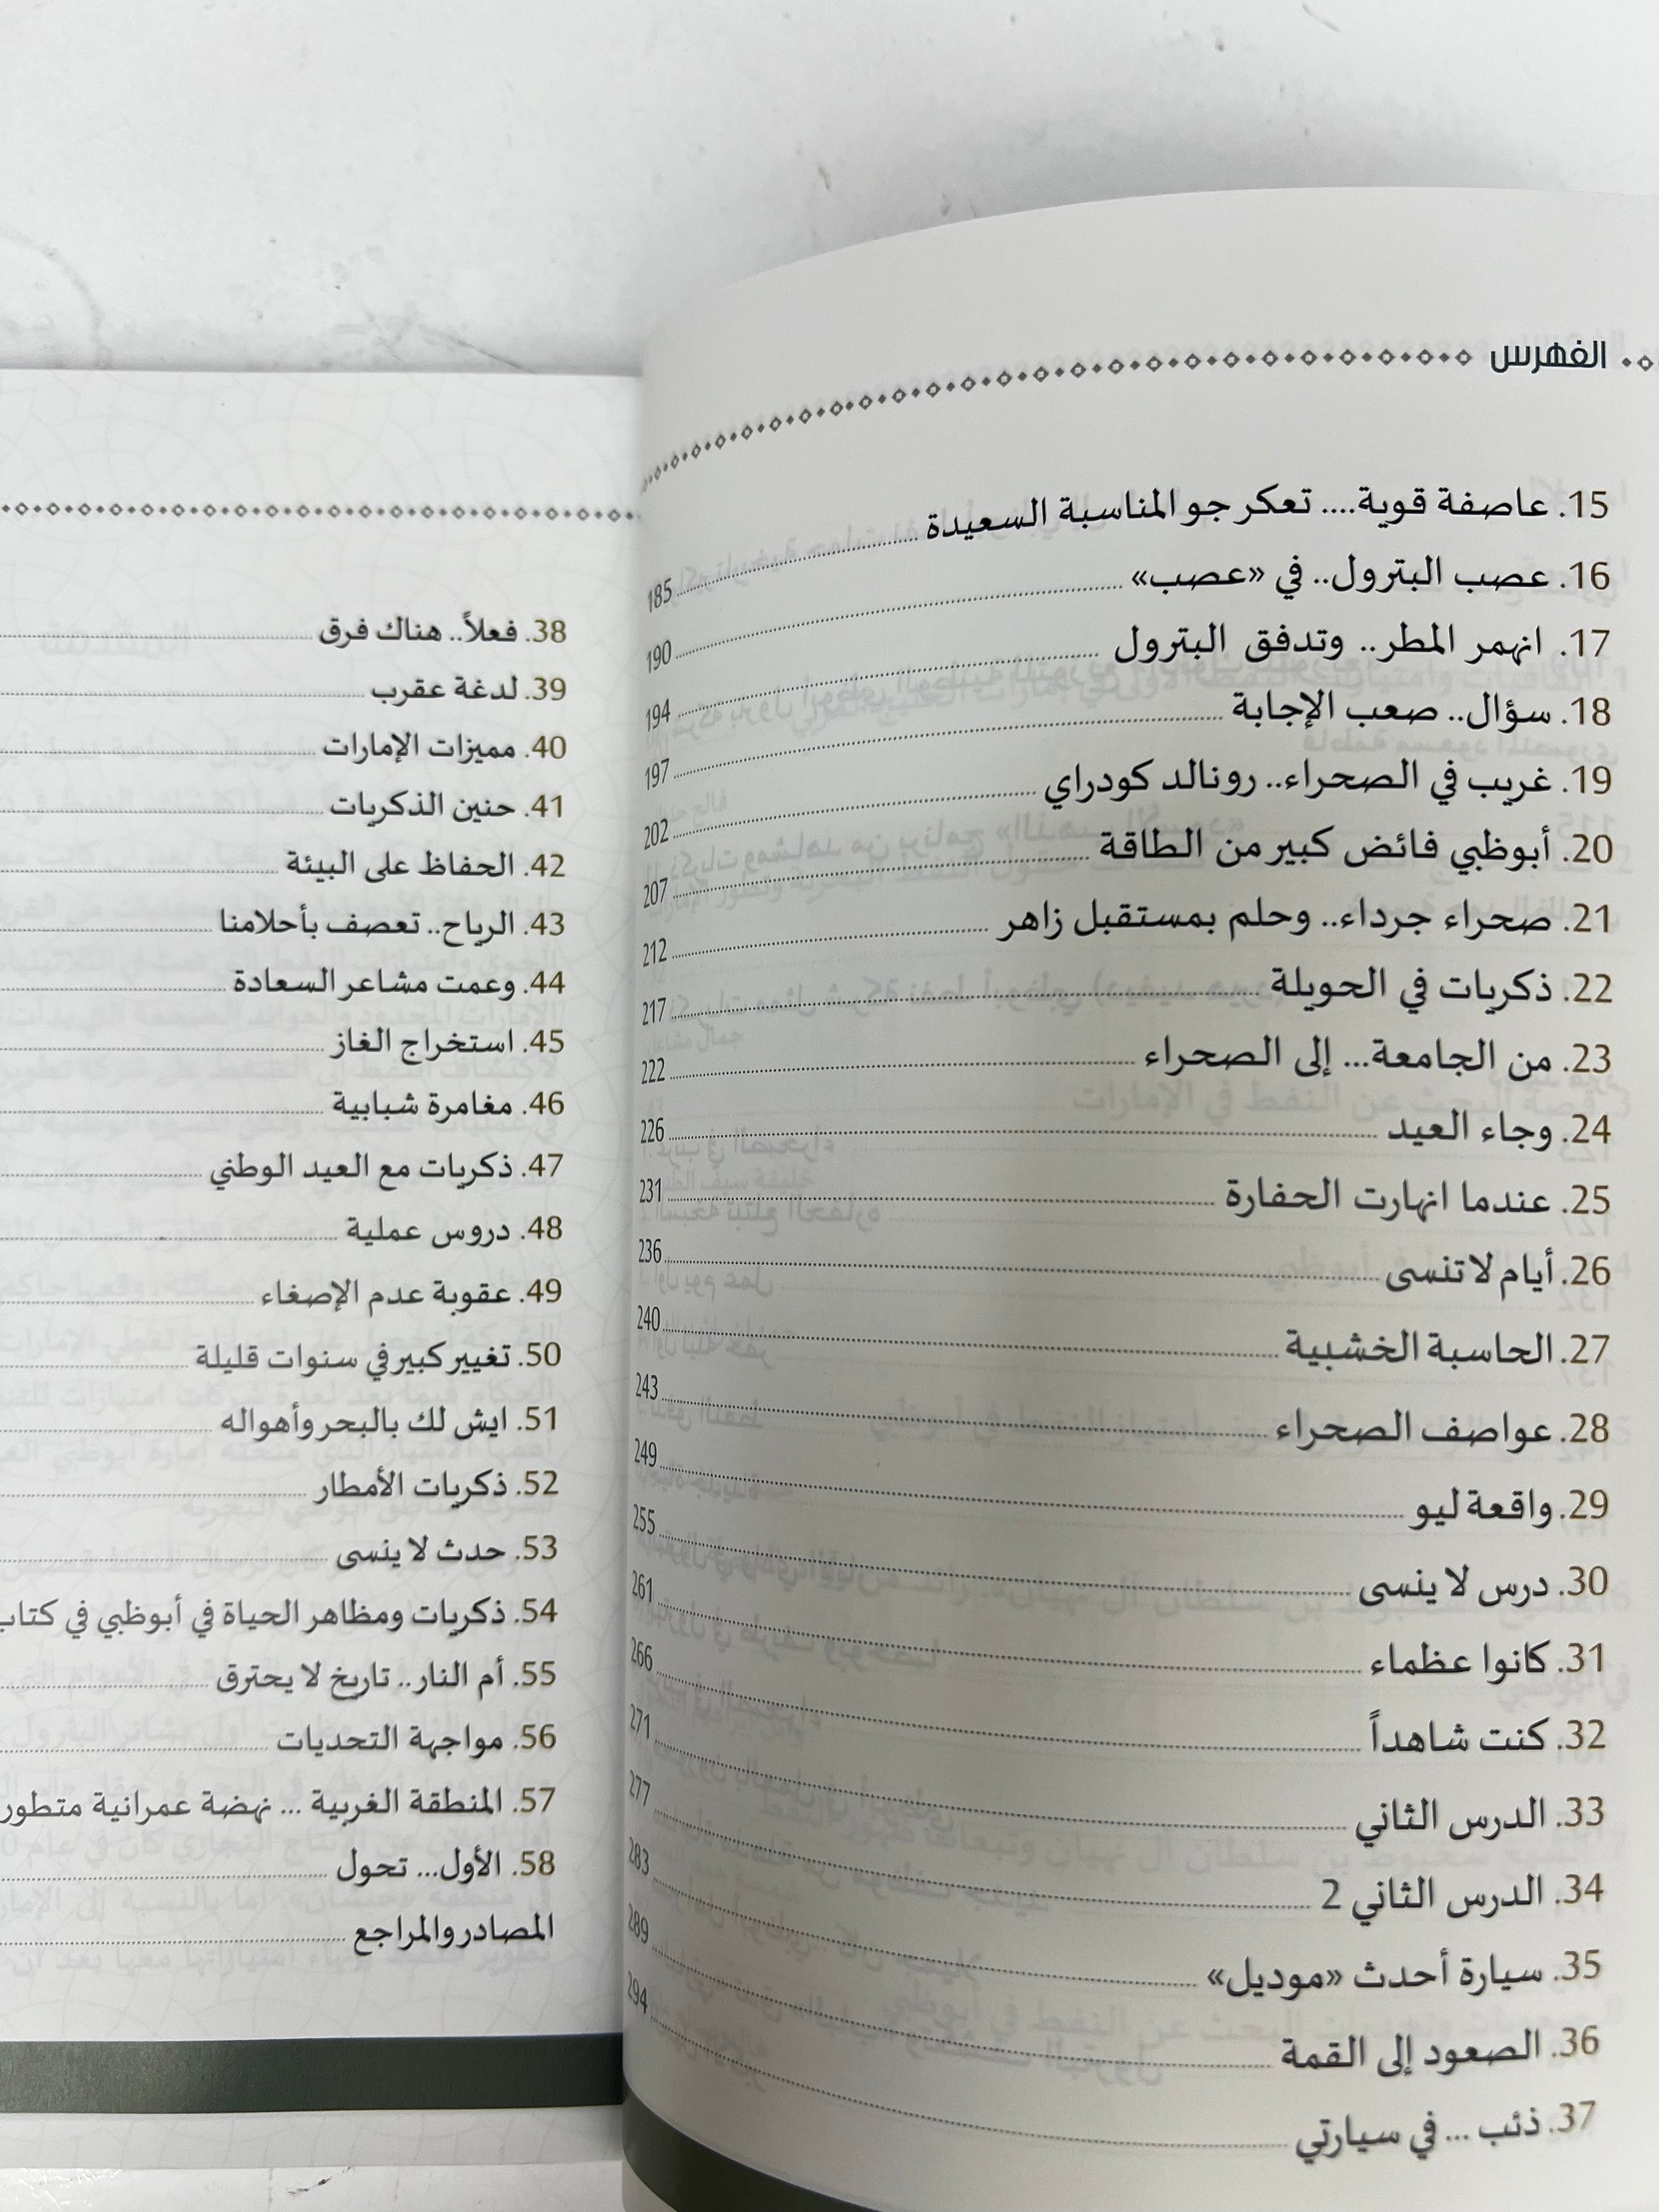 الفهرس
15. عاصفة قوية.... تعكر جو المناسبة السعيدة 185
16. عصب البترول.. في «عصب» 190
17. انهمر المطر.. وتدفق البترول 194
18. سؤال.. صعب الإجابة 197
19. غريب في الصحراء.. رونالد كودراي 202
20. أبوظبي فائض كبير من الطاقة 207
21. صحراء جرداء.. وحلم بمستقبل زاهر 212
22. ذكريات في الحويلة 217
23. من الجامعة... إلى الصحراء 222
24. وجاء العيد 226
25. عندما انهارت الحفارة 231
26. أيام لا تنسى 236
27. الحاسبة الخشبية 240
28. عواصف الصحراء 243
29. واقعة ليو 249
30. درس لا ينسى 255
31. كانوا عظماء 261
32. كنت شاهداً 266
33. الدرس الثاني 271
34. الدرس الثاني 2 277
35. سيارة أحدث «موديل» 283
36. الصعود إلى القمة 289
37. ذئب ... في سيارتي 294
38. فعلاً.. هناك فرق
39. لدغة عقرب
40. مميزات الإمارات
41. حنين الذكريات
42. الحفاظ على البيئة
43. الرياح.. تعصف بأحلامنا
44. وعمت مشاعر السعادة
45. استخراج الغاز
46. مغامرة شبابية
47. ذكريات مع العيد الوطني
48. دروس عملية
49. عقوبة عدم الإصغاء
50. تغيير كبير في سنوات قليلة
51. ايش لك بالبحر وأهواله
52. ذكريات الأمطار
53. حدث لا ينسى
54. ذكريات ومظاهر الحياة في أبوظبي في كتاب
55. أم النار.. تاريخ لا يحترق
56. مواجهة التحديات
57. المنطقة الغربية ... نهضة عمرانية متطور
58. الأول... تحول
المصادر والمراجع